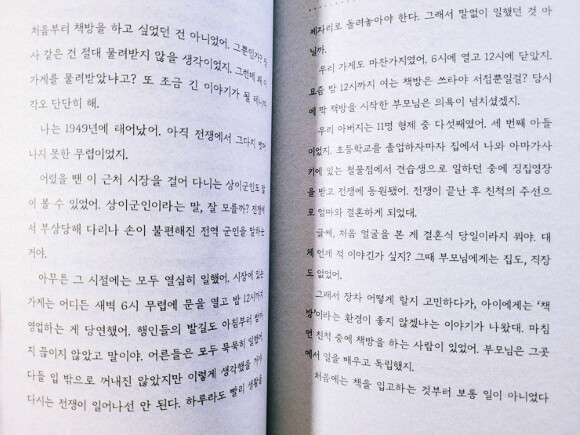 처음부터 책방을 하고 싶었던 건 아니었어. 그뿐인가? 장
사 같은 건 절대 물려받지 않을 생각이었지. 그런데 왜
가게를 물려받았냐고? 또 조금 긴 이야기가 될 테니
각오 단단히 해.
나는 1949년에 태어났어. 아직 전쟁에서 그다지 벗어
나지 못한 무렵이었지.
어렸을 땐 이 근처 시장을 걸어 다니는 상이군인도 많
이 볼 수 있었어. 상이군인이라는 말, 잘 모를까? 전쟁에
서 부상당해 다리나 손이 불편해진 전역 군인을 말하는
거야.
아무튼 그 시절에는 모두 열심히 일했어. 시장에 있는
가게는 어디든 새벽 6시 무렵에 문을 열고 밤 12시까지
영업하는 게 당연했어. 행인들의 발길도 아침부터 밤까
지 끊이지 않았고 말이야. 어른들은 모두 묵묵히 일했어.
다들 입 밖으로 꺼내진 않았지만 이렇게 생각했을 거야.
다시는 전쟁이 일어나선 안 된다. 하루라도 빨리 생활을
제자리로 돌려놓아야 한다. 그래서 말없이 일했던 것 아
닐까.
우리 가게도 마찬가지였어. 6시에 열고 12시에 닫았지.
요즘 밤 12시까지 여는 책방은 쓰타야 서점뿐일걸? 당시
에 막 책방을 시작한 부모님은 의욕이 넘치셨겠지.
우리 아버지는 11명 형제 중 다섯째였어. 세 번째 아들
이었지. 초등학교를 졸업하자마자 집에서 나와 아마가사
키에 있는 철물점에서 견습생으로 일하던 중에 징집영장
을 받고 전쟁에 동원됐어. 전쟁이 끝난 후 친척의 주선으
로 엄마와 결혼하게 되었대.
글쎄, 처음 얼굴을 본 게 결혼식 당일이라지 뭐야. 대
체 언제 적 이야긴가 싶지? 그때 부모님에게는 집도, 직장
도 없었어.
그래서 장차 어떻게 할지 고민하다가, 아이에게는 ‘책
방’이라는 환경이 좋지 않겠냐는 이야기가 나왔대. 마침
먼 친척 중에 책방을 하는 사람이 있었어. 부모님은 그곳
에서 일을 배우고 독립했지.
처음에는 책을 입고하는 것부터 보통 일이 아니었다